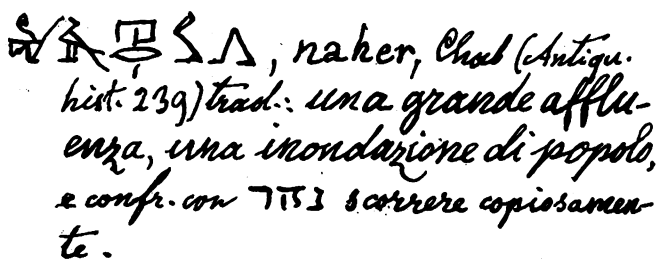 , naher, Chab (Antiqu.
hist. 239) trad.: una grande afflu-
enza, una inondazione di popolo,
e confr. con נהר scorrere copiosamen-
te.